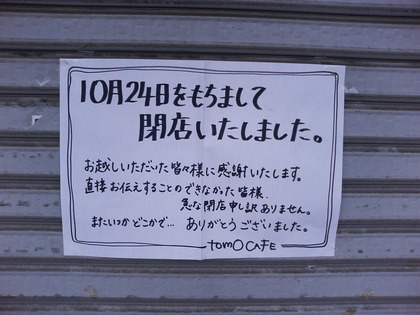 10月24日をもちまして
閉店いたしました。
お越しいただいた皆々様に感謝いたします。
直接お伝えすることのできなかった皆様、
急な閉店申し訳ありません。
またいつかどこかで… ありがとうございました。
tomO CAFE